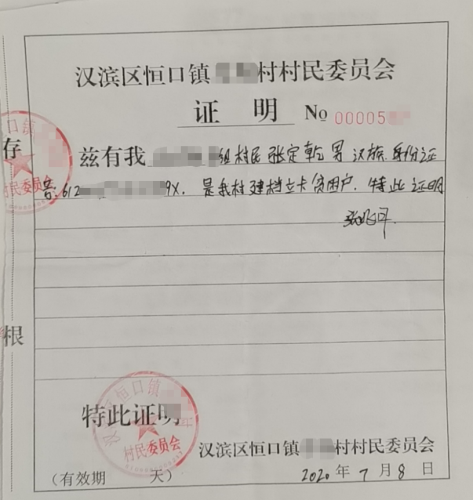 汉滨区恒口镇村村民委员会
证 明 No 00005
存
兹有我 组村民 张定乾 男 汉族 身份证
号:612 9X. 是我村建档立卡贫困户. 特此证明
根
特此证明
汉滨区恒口镇村村民委员会
(有效期 天) 2020年7月8日
汉滨区恒口镇
村民委员会
口镇
村民委员会